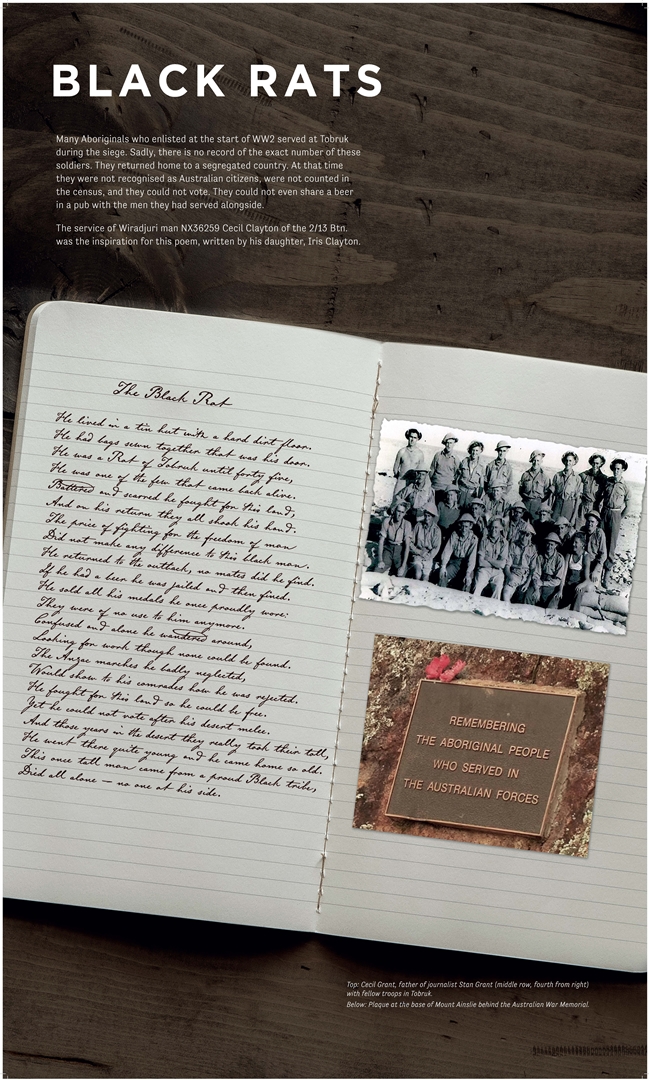 BLACK RATS
Many Aboriginals who enlisted at the start of WW2 served at Tobruk
during the siege. Sadly, there is no record of the exact number of these
soldiers. They returned home to a segregated country. At that time
they were not recognised as Australian citizens, were not counted in
the census, and they could not vote. They could not even share a beer
in a pub with the men they had served alongside.
The service of Wiradjuri man NX36259 Cecil Clayton of the 2/13 Btn.
was the inspiration for this poem, written by his daughter, Iris Clayton.
The Black Rat
He lived in a tin hut with a hard dirt floor.
He had bags sewn together that was his door.
He was a Rat of Tobruk until forty five,
He was one of the few that came back alive.
Battered and scarred he fought for this land;
And on his return they all shook his hand.
The price of fighting for the freedom of man
Did not make any difference to this black man.
He returned to the outback, no mates did he find.
If he had a beer he was jailed and then fined.
He sold all his medals he once proudly wore:
They were of no use to him anymore.
Confused and alone he wandered around,
Looking for work though none could be found.
The Anzac marches he badly neglected,
Would show to his comrades how he was rejected.
He fought for this land so he could be free.
Yet he could not vote after his desert melee.
And those years in the desert they really took their toll,
He went there quite young and he came home so old.
This once tall man came from a proud Black tribe,
Died all alone – no one at his side.
REMEMBERING
THE ABORIGINAL PEOPLE
WHO SERVED IN
THE AUSTRALIAN FORCES
Top: Cecil Grant, father of journalist Stan Grant (middle row, fourth from right)
with fellow troops in Tobruk.
Below: Plaque at the base of Mount Ainslie behind the Australian War Memorial.